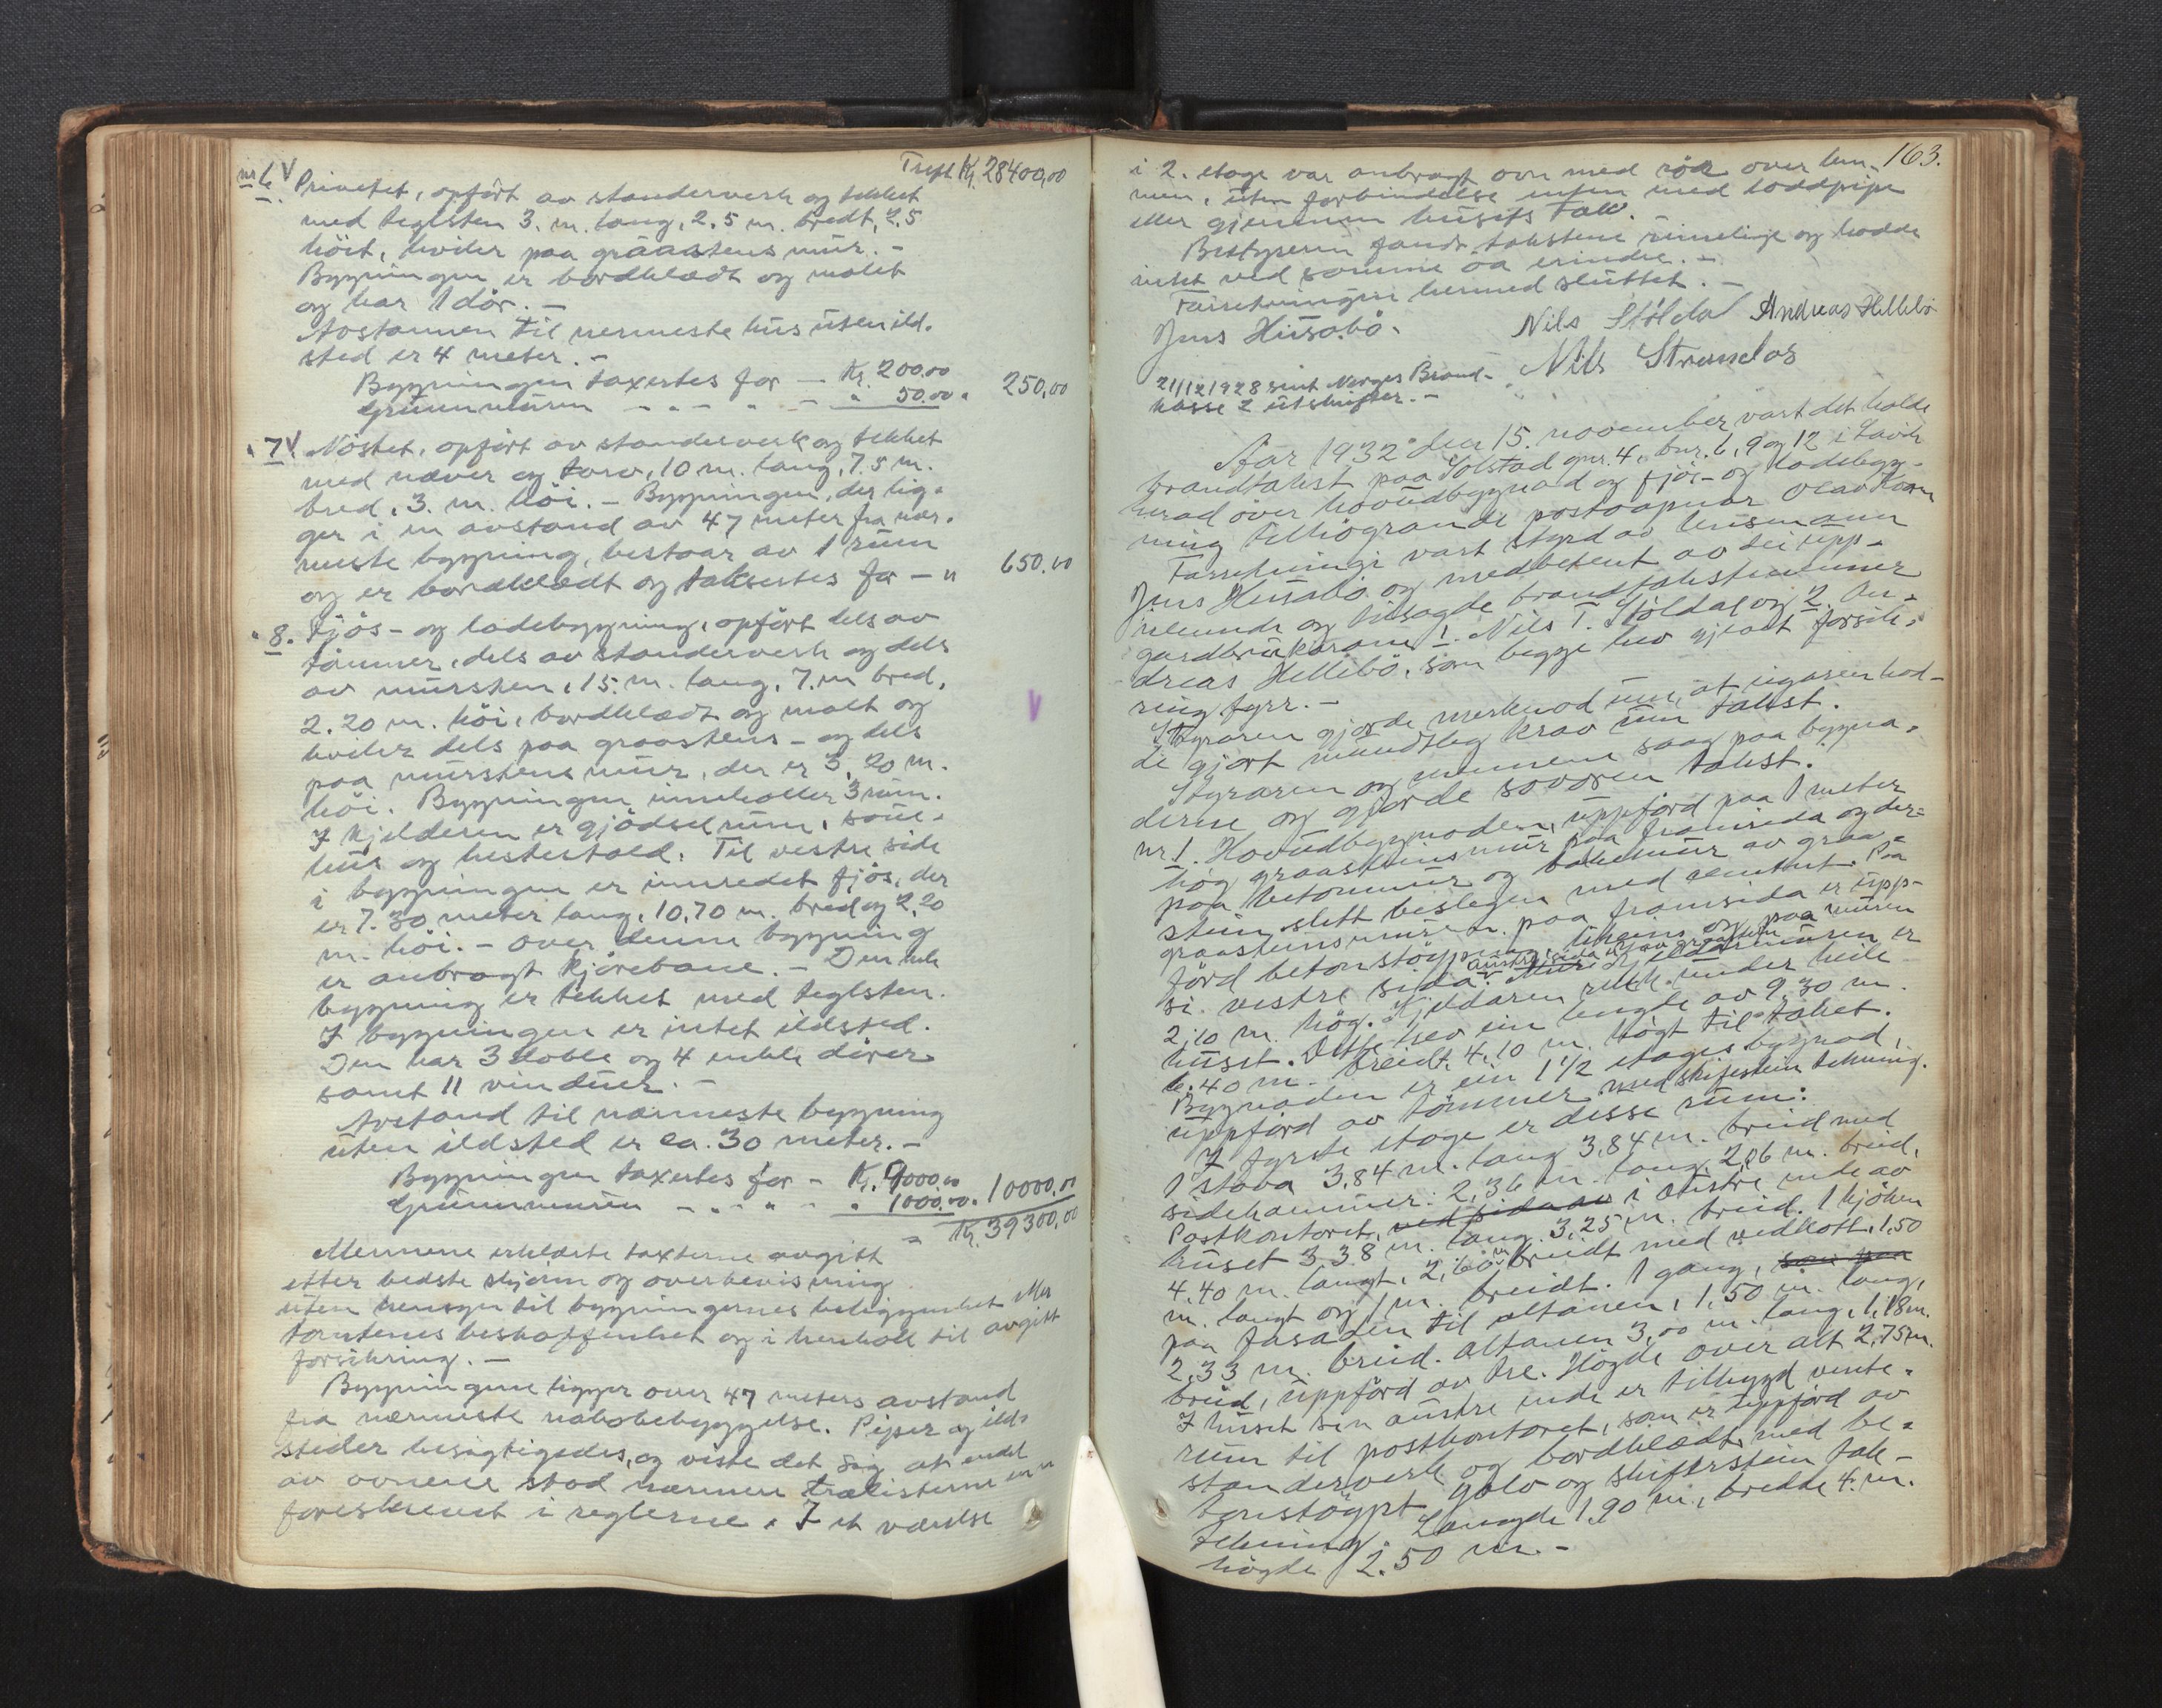 Trspt. Kr. 28400,00
nr 6. V Privetet, opført av standerverk og tekket
med teglsten 3. m. lang, 2,5 m. bredt, 2,5
høit, hviler paa graastens mur. -
Bygningen er bordklædt og malet
og har 1 dör. -
Avstannen til nermeste hus uten ild-
sted er 4 meter. -
Bygningen taxertes for - Kr. 200.00
Grunnmuren - " - - " 50.00 " 250,00
" 7 V Nöstet, opfört av standerverk og tekket
med næver og torv, 10 m. lang, 7.5 m.
bred, 3. m. höi. - Bygningen, der lig-
ger i en avstand av 47 meter fra nær-
meste bygning, bestaar av 1 rum
og er bordklædt og taksertes for - " 650.00
" 8. Fjös- og ladebygning, opfört dels av
tömmer, dels av standerverk og dels
av mursten, 15. m. lang, 7. m bred,
2.20 m. höi, bordklædt og malt og
hviler dels paa graastens - og dels
paa murstens mur, der er 3,20 m.
höi. Bygningen inneholler 3 rum.
I kjelderen er gjödselrum, saue-
hus og hestestald. Til vestre side
i bygningen er innredet fjös, der
er 7.30 meter lang, 10,70 m. bred og 2,20
m. höi. - Over denne bygning
er anbragt kjörebane. - Den hele
bygning er tekket med teglsten.
I bygningen er intet ildsted.
Den har 3 doble og 4 enkle dörer
samt 11 vinduer. -
Avstand til nærmeste bygning
uten ildsted er ca. 30 meter. -
Bygningen taxertes for - Kr. 9000.00
Grunnmuren - " - " - " 1000.00 " 10000,00
= Kr. 39300,00
Mennene erklærte taxterne avgitt
efter bedste skjönn og overbevisning
uten hensyn til bygningernes beliggenhet eller
tomtenes beskaffenhet og i henhold til avgitt
forsikring. -
Bygningene ligger over 47 meters avstand
fra nærmeste nabobebyggelse. Piper og ild-
steder besigtigedes, og viste det sig at endel
av ovnene stod nærmere trælisterne enn
foreskrevet i reglerne. I et værelse
163.
i 2. etage var anbragt ovn med rör over lem-
men, uten forbindelse enten med loddpipe
eller gjennem husets tak.
Bestyreren fandt takstene rimelige og hadde
intet ved samme aa erindre. -
Forretningen hermed sluttet. -
Jens Husabö. Nils Stöldal Andreas Hellebö
Nils Strandos
21/12 1928 sent Norges Brand-
kasse 2 utskrifter. -
Aar 1932 den 15. november, vart det halde
brandtakst paa Solstad gnr. 4, bnr. 6, 9 og 12 i Lavik
herad over hovudbygnad og fjös- og ladebyg-
ning tilhögrande postopnar Olav Kvam
Forretningi vart styrd av lensmann
Jens Husabö og medbetent av dei upp-
nemnde og tilsagde brandtakstmenner
gardbrukarane 1. Nils T. Stöldal og 2. An-
dreas Hellebö, som begge hev gjeve forsik-
ring fyrr. -
Styraren gjorde merknad um, at eigaren had-
de gjort mundtleg krav um takst.
Styraren og mennene saag paa bygna-
derne og gjorde soddan takst.
nr. 1. Hovudbygnaden, uppförd paa 1 meter
hög graasteinsmur paa framsida og der-
paa betonmur og bakmur av graa-
stein slett beslegen med cement. Paa
graasteinsmuren paa framsida er upp-
förd betonstöypning, likeins og paa muren
si vestre sida. austre sida er av graastein Kjeldarmuren er
2,10 m. hög. Kjeldaren rekk under heile
huset. Dette hev ein lengde av 9,30 m.
6.40 m. breidt, 4,10 m. högt til taket.
Bygnaden er ein 1 1/2 etages bygnad,
uppförd av tömmer med skiferstein tekning.
I fyrste etage er desse rum:
1 stova 3,84 m. lang 3,84 m. breid med
sidekammer: 2,36 m. lang, 2,06 m. breid.
Postkontoret, ved sida av i austre ende av
huset 3 38 m. lang 3,25 m. breid. 1 kjöken
4,40 m. langt, 2,60 m breidt med vedkott, 1,50
m. langt og 1 m. breidt. 1 gang, som paa
paa fasaden til altanen, 1,50 m. lang,
2,33 m. breid. Altanen 3,00 m. lang, 1,18 m.
breid, uppförd av tre. Högde over alt 2,75 m.
I huset sin austre ende er tilbygd vente-
rum til postkontoret, som er uppförd av
standerverk og bordklædt med be-
tonstöypt golv og skiferstein tak-
tekning. Lengde 1,90 m., bredde 4. m.
högde 2.50 m. -